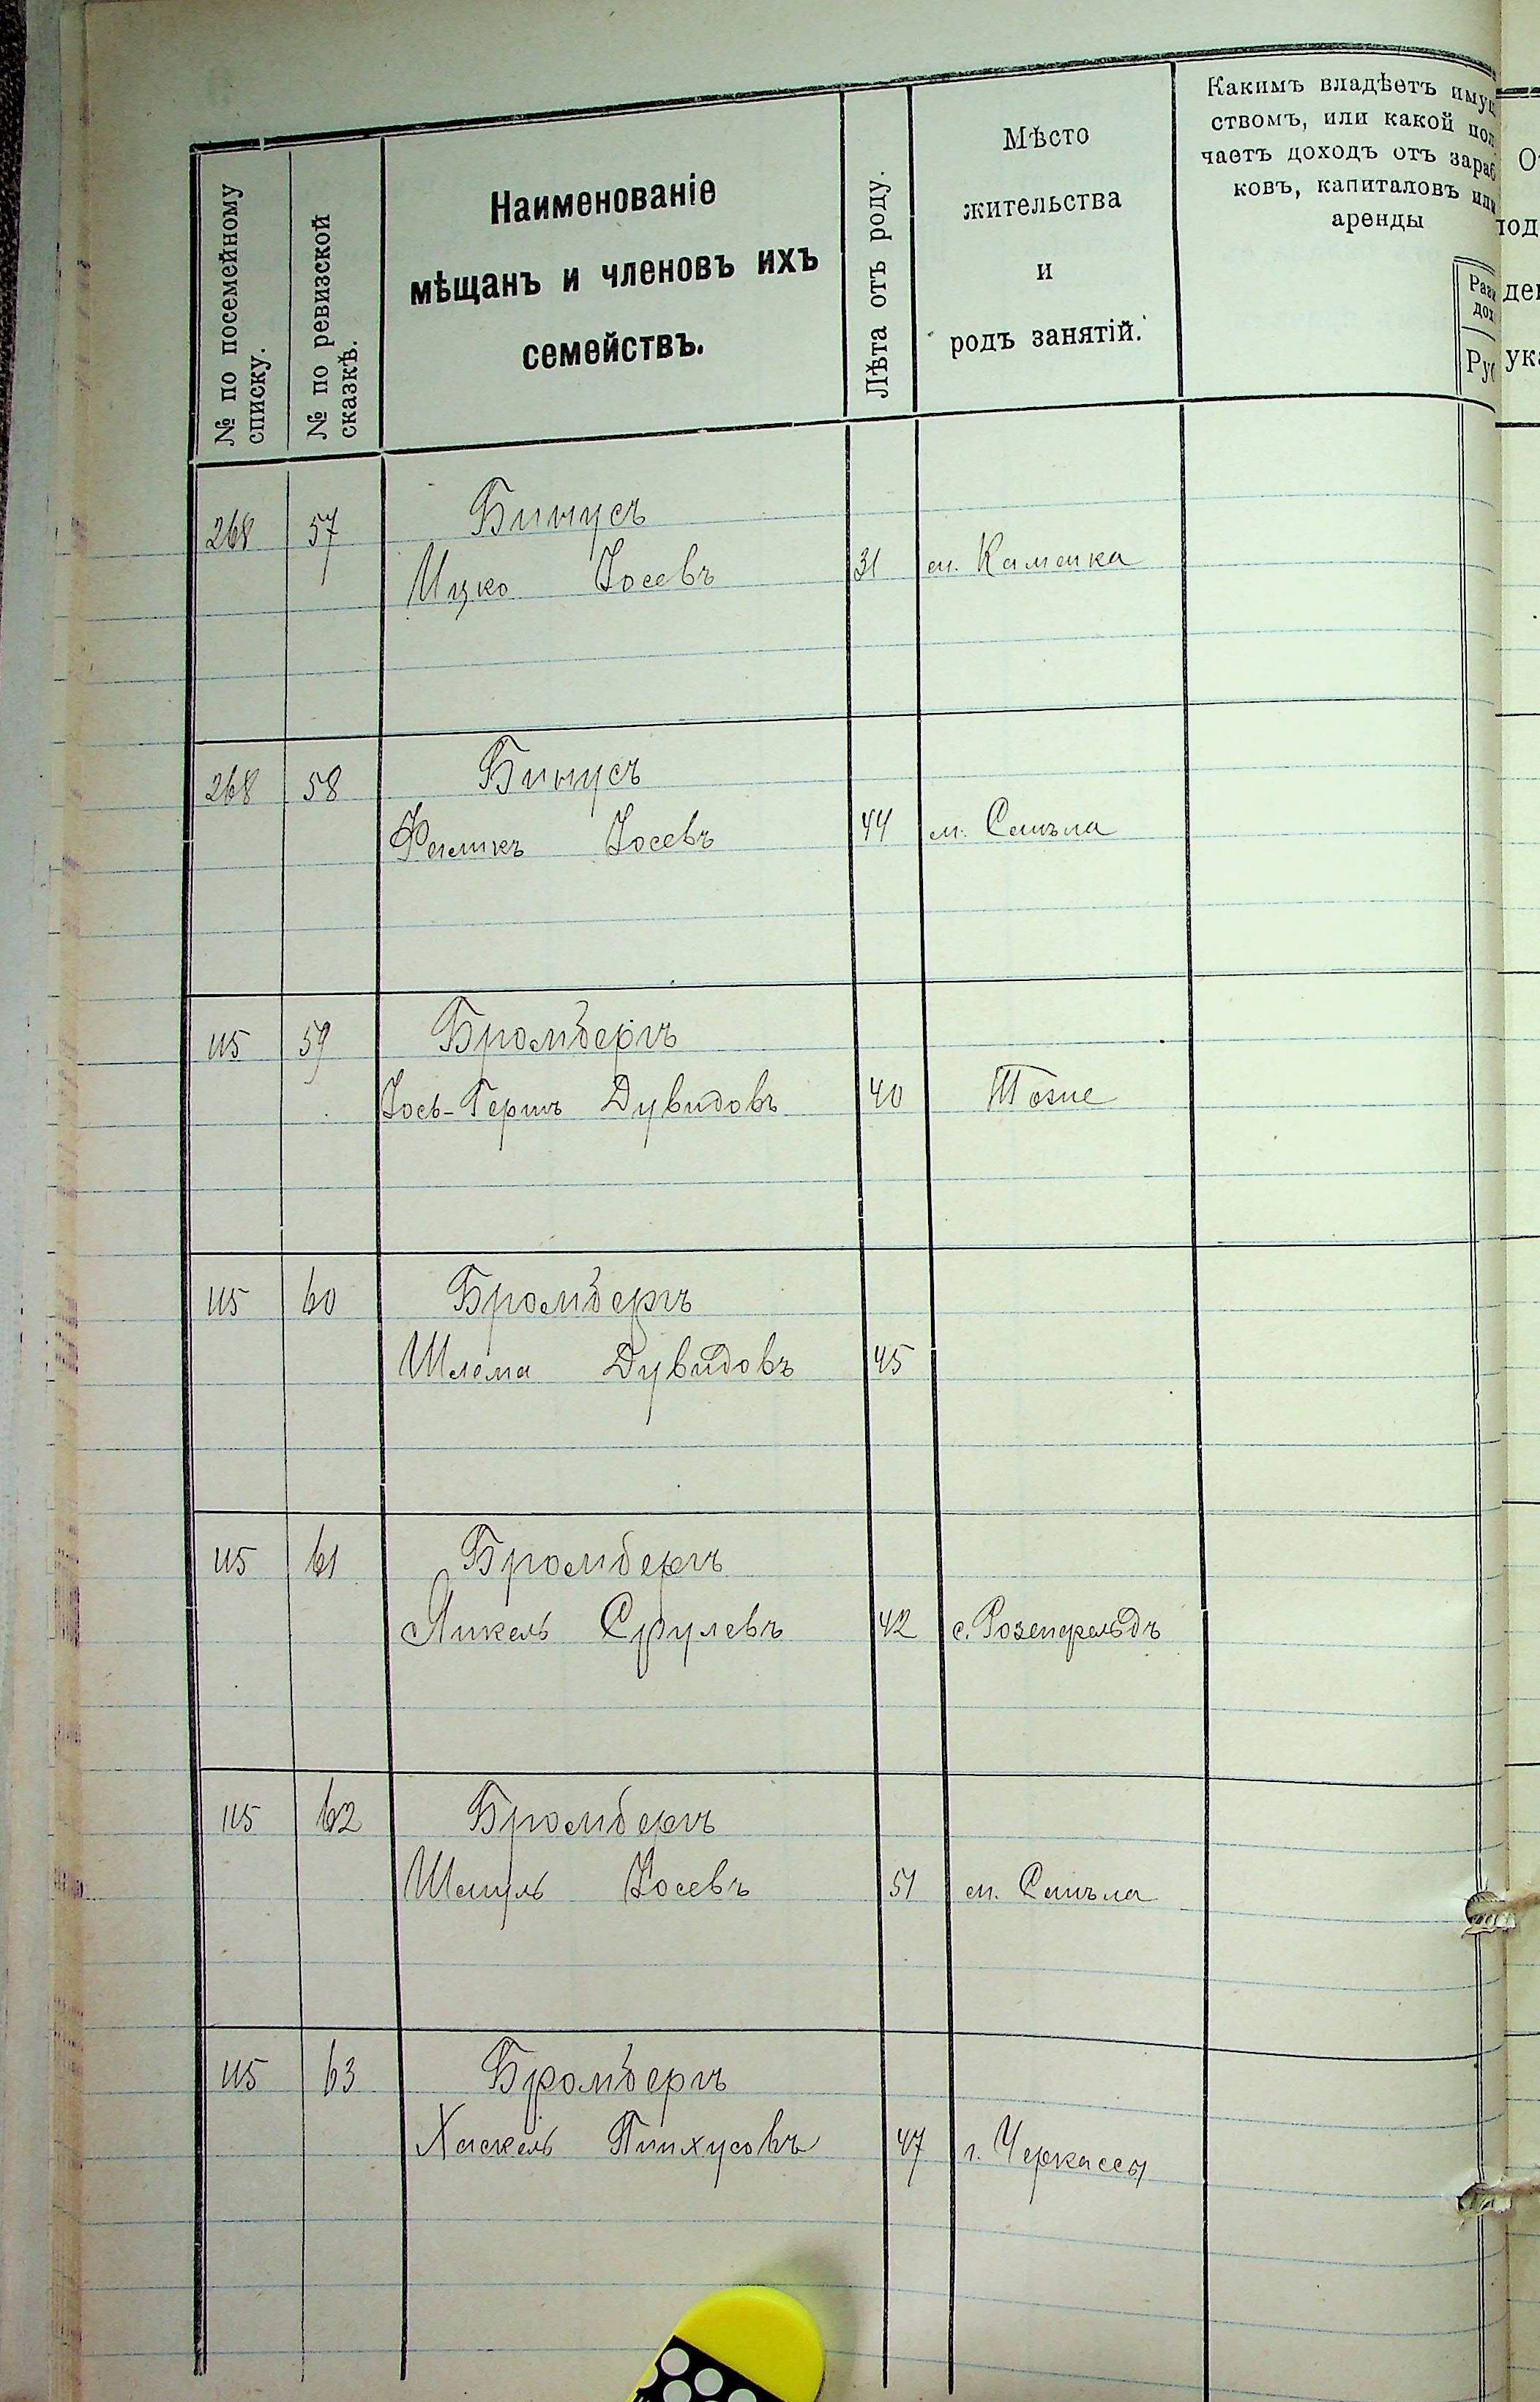 № по посемейному
списку.
№ по ревизской
сказкѣ.
Наименованіе
мѣщанъ и членовъ ихъ
семействъ.
Лѣта отъ роду.
Мѣсто
жительства
и
родъ занятій.
Какимъ владѣетъ имущ
ствомъ, или какой пол
чаетъ доходъ отъ зараб
ковъ, капиталовъ или
аренды
268 57 Бинусъ
Ицко Іосевъ 31 м. Каменка
268 58 Бинусъ
Іосевъ 44 м. Смѣла
115 59 Бромбергъ
Іось-Гершъ Дувидовъ 40 Тоже
115 60 Бромбергъ
Шлема Дувидовъ 45
115 61 Бромбергъ
Янкель Срулевъ 42 с. Розенфельдъ
115 62 Бромбергъ
Шмуль Іосевъ 51 м. Смѣла
115 63 Бромбергъ
Хаскель Пинхусовъ 47 г. Черкассы